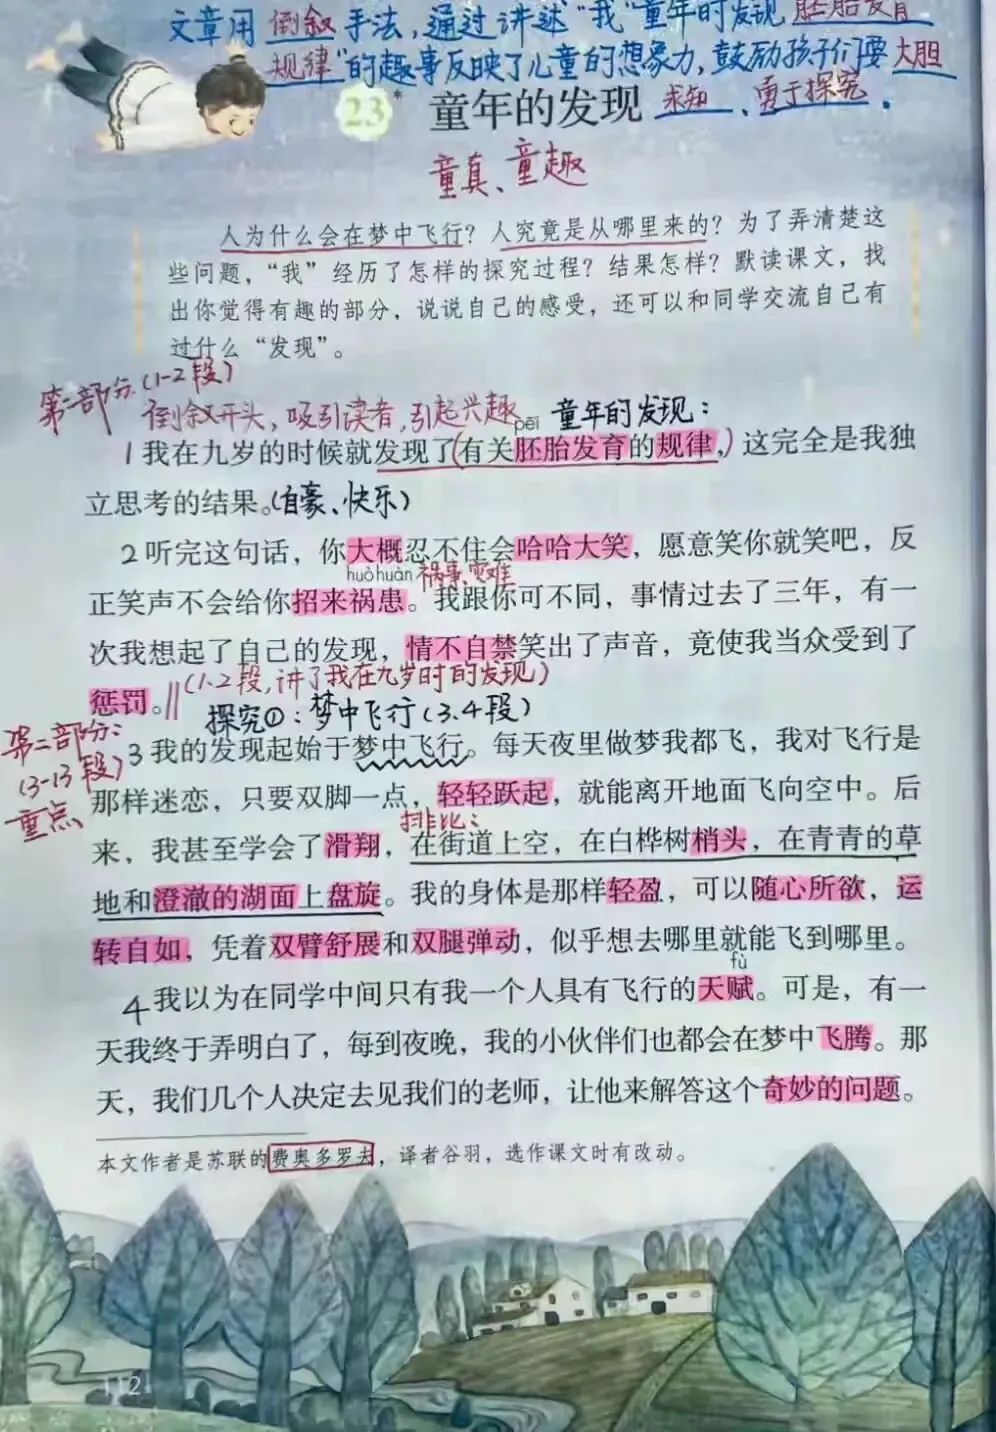 文章用 倒叙 手法，通过讲述“我”童年时发现 胚胎发育
规律”的趣事反映了儿童的想象力，鼓励孩子们要 大胆
求知 、勇于探究 。
23* 童年的发现
童真、童趣
人为什么会在梦中飞行？人究竟是从哪里来的？为了弄清楚这
些问题，“我”经历了怎样的探究过程？结果怎样？默读课文，找
出你觉得有趣的部分，说说自己的感受，还可以和同学交流自己有
过什么“发现”。
部分.(1-2段)
倒叙开头，吸引读者，引起兴趣
pēi
童年的发现：
1我在九岁的时候就发现了(有关胚胎发育的规律，)这完全是我独
立思考的结果。(自豪、快乐)
2听完这句话，你大概忍不住会哈哈大笑，愿意笑你就笑吧，反
huò huàn 祸事、灾难
正笑声不会给你招来祸患。我跟你可不同，事情过去了三年，有一
次我想起了自己的发现，情不自禁笑出了声音，竟使我当众受到了
惩罚。‖(1.2段，讲了我在九岁时的发现)
探究①：梦中飞行(3.4段)
第二部分：
(3-13段)
重点
3我的发现起始于梦中飞行。每天夜里做梦我都飞，我对飞行是
那样迷恋，只要双脚一点，轻轻跃起，就能离开地面飞向空中。后
排比：
来，我甚至学会了滑翔，在街道上空，在白桦树梢头，在青青的草
地和澄澈的湖面上盘旋。我的身体是那样轻盈，可以随心所欲，运
转自如，凭着双臂舒展和双腿弹动，似乎想去哪里就能飞到哪里。
fù
4我以为在同学中间只有我一个人具有飞行的天赋。可是，有一
天我终于弄明白了，每到夜晚，我的小伙伴们也都会在梦中飞腾。那
天，我们几个人决定去见我们的老师，让他来解答这个奇妙的问题。
本文作者是苏联的费奥多罗夫，译者谷羽，选作课文时有改动。
112